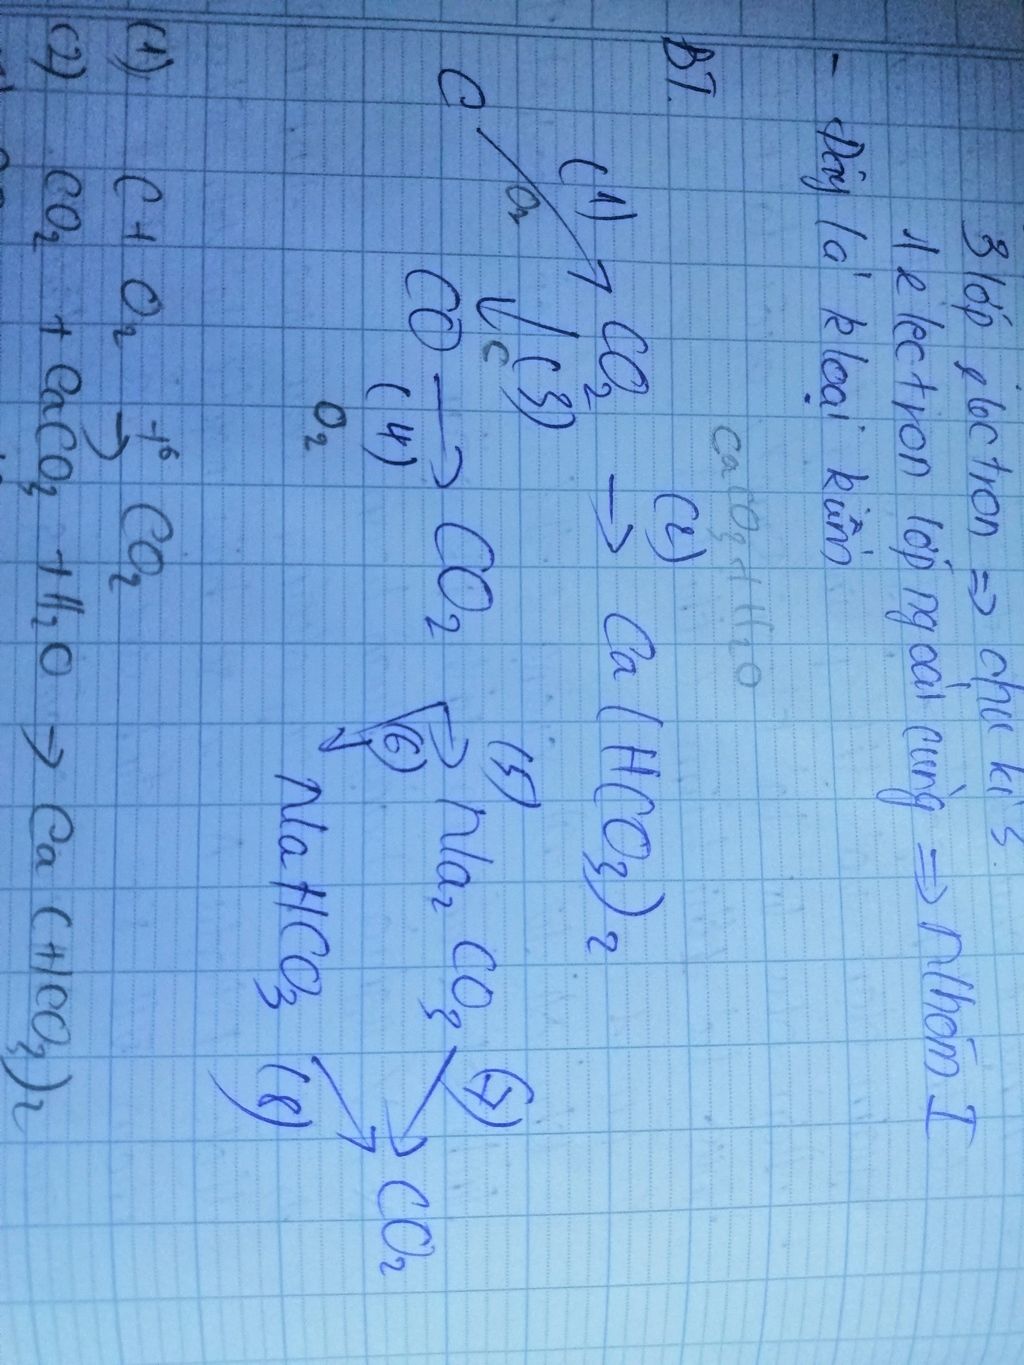 3 lớp electron => chu kì 3.
1 electron lớp ngoài cùng => Nhóm I
- Đây là kloại kiềm
BT.
CaCO3 + H2O
(1) CO2 (2) → Ca(HCO3)2
C O2 (3) C
CO → CO2 (5) Na2CO3 (7) CO2
(4) (6) NaHCO3 (8)
O2
(1) C + O2 →t° CO2
(2) CO2 + CaCO3 + H2O → Ca(HCO3)2